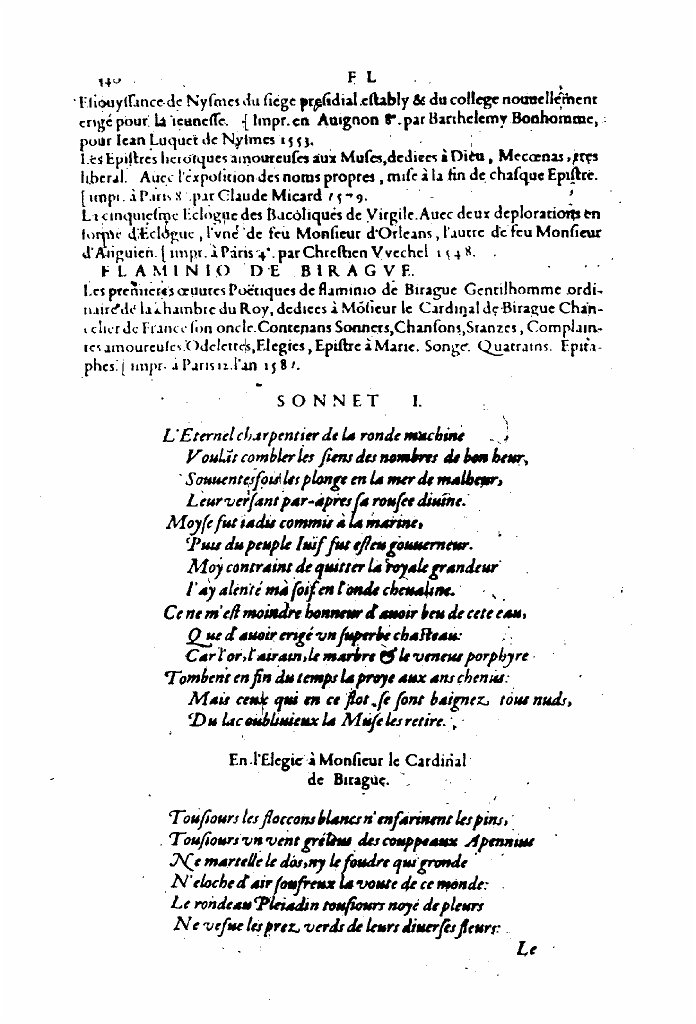 340 F L
Esiouyssance de Nysmes du siege presidial estably & du college nouuellement
erigé pour la ieunesse. [Impr. en Auignon 8°. par Barthelemy Bonhomme,
pour Iean Luquet de Nysmes 1553.
Les Epistres heroïques amoureuses aux Muses, dediees à Dieu, Mecœnas, tres
liberal. Auec l'exposition des noms propres, mise à la fin de chasque Epistre.
[impr. à Paris 8. par Claude Micard 1579.
La cinquiesme Eclogue des Bacoliques de Virgile. Auec deux deplorations en
forme d'Eclogue, l'vne de feu Monsieur d'Orleans, l'autre de feu Monsieur
d'Anguien. [impr. à Paris 4°. par Chrestien VVechel 1548.
FLAMINIO DE BIRAGVE.
Les premieres œuures Poëtiques de flaminio de Birague Gentilhomme ordi-
naire de la chambre du Roy, dediees à Mōsieur le Cardinal de Birague Chan-
celier de France son oncle. Contenans Sonnets, Chansons, Stanzes, Complain-
tes amoureuses. Odelettes, Elegies, Epistre à Marie. Songe. Quatrains. Epita-
phes. [impr. à Paris 12. l'an 158
SONNET I.
L'Eternel charpentier de la ronde machine
Voulāt combler les siens des nombres de bon heur,
Souuentesfois les plonge en la mer de malheur,
Leur versant par-apres sa rousee diuine.
Moyse fut iadis commis à la marine,
Puis du peuple Iuif fut esleu gouuerneur.
Moy contraint de quitter la royale grandeur
I'ay alenté ma soif en l'onde cheualine.
Ce ne m'est moindre honneur d'auoir beu de cete eau,
Que d'auoir erigé vn superbe chasteau:
Car l'or, l'airain, le marbre & le veneux porphyre
Tombent en fin du temps la proye aux ans chenus:
Mais ceux qui en ce flot se sont baignez tous nuds,
Du lac oubliuieux la Muse les retire.
En l'Elegie à Monsieur le Cardinal
de Birague.
Tousiours les floccons blancs n'enfarinent les pins,
Tousiours vn vent des couppeaux Apennins
Ne martelle le dos, ny le foudre qui gronde
N'eloche d'air soufreux la voute de ce monde:
Le rondeau Pleiadin tousiours noyé de pleurs
Ne vefue les prez verds de leurs diuerses fleurs:
Le